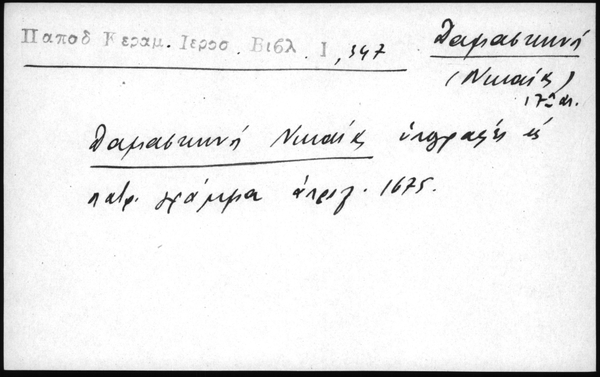 Παποδ Κεραμ. Ιεροσ. Βιβλ. I, 347
Δαμασκηνὸς
(Νικαίας)
17ος αἰ.
Δαμασκηνὸς Νικαίας ὑπογραφεὶς εἰς
πατρ. γράμμα ἀπριλ. 1675.